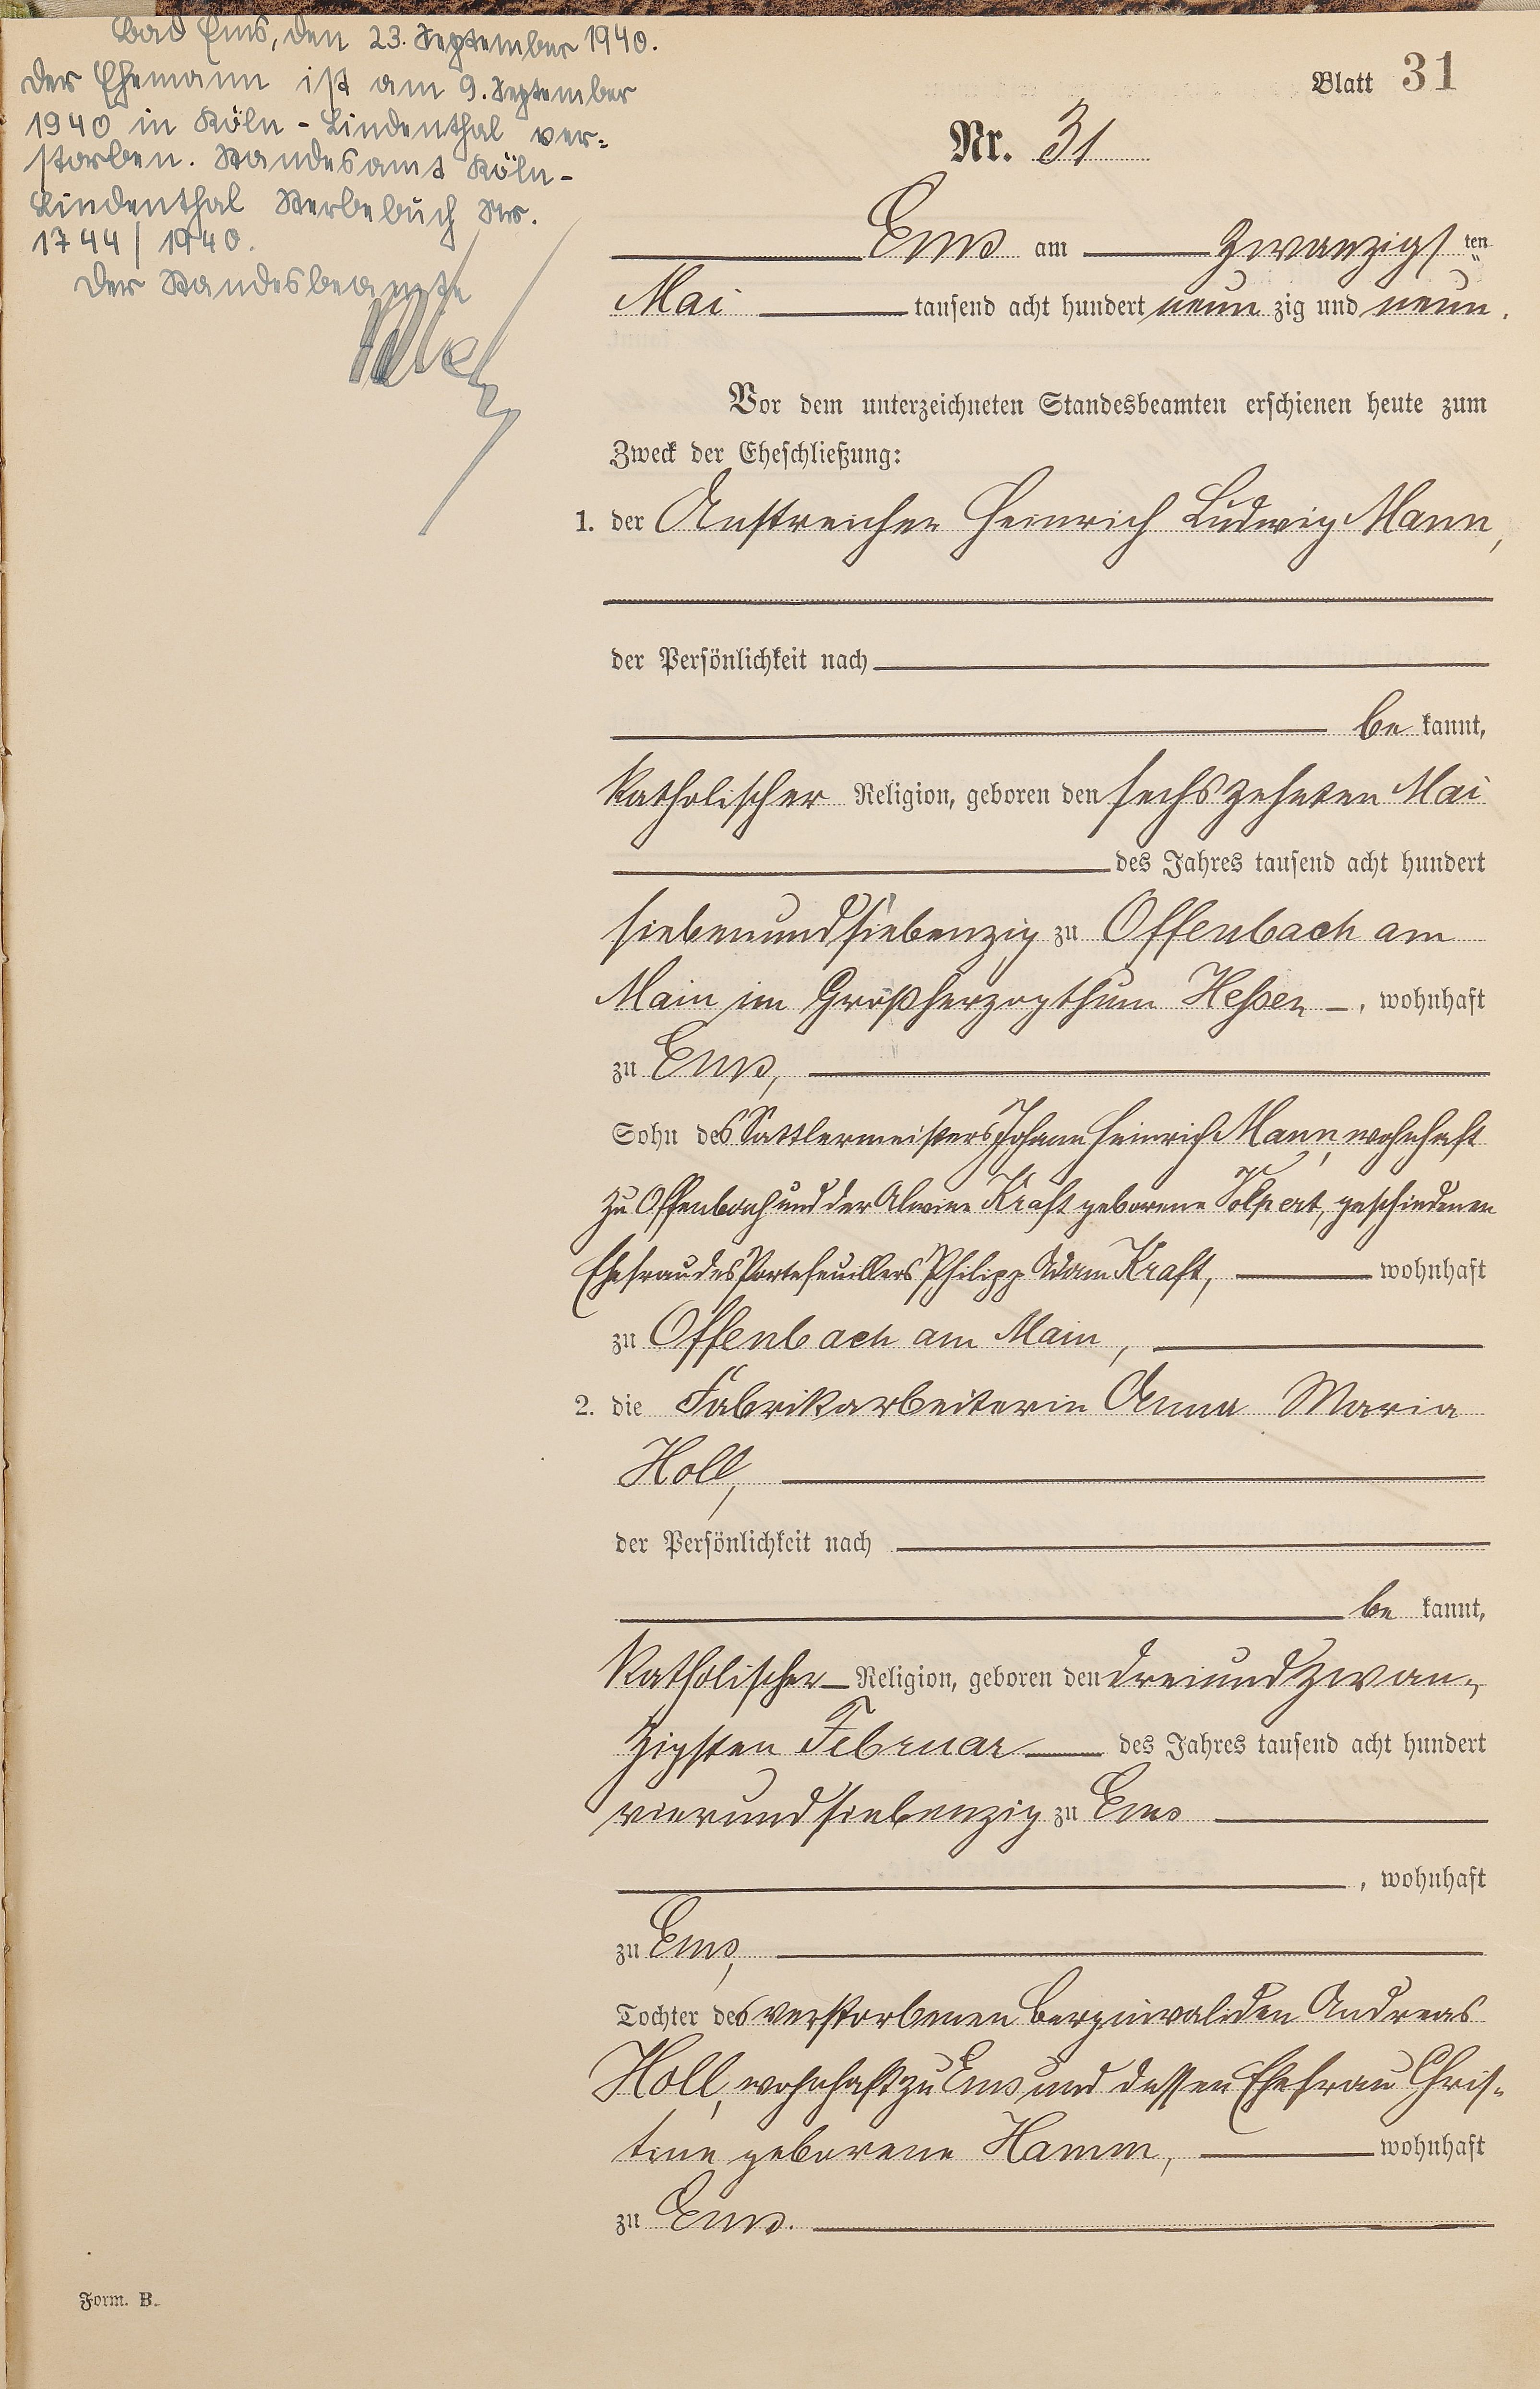 Bad Ems, den 23. September 1940.
Der Ehemann ist am 9. September
1940 in Köln-Lindenthal ver=
storben. Standesamt Köln-
Lindenthal Sterbebuch Nr.
1744/1940.
Der Standesbeamte
Blatt 31
Nr. 31
Ems am Zwanzigsten
Mai tausend acht hundert neun zig und neun.
Vor dem unterzeichneten Standesbeamten erschienen heute zum
Zweck der Eheschließung:
1. der Anstreicher Heinrich Ludwig Mann,
der Persönlichkeit nach
be kannt,
katholischer Religion, geboren den sechszehnten Mai
des Jahres tausend acht hundert
siebenundsiebenzig zu Offenbach am
Main im Großherzogthum Hessen, wohnhaft
zu Ems,
Sohn des Sattlermeisters Johann Heinrich Mann, wohnhaft
zu Offenbach und der Alwine Kraft geborene Volpert, geschiedenen
Ehefrau des Portefeuillers Philipp Adam Kraft, wohnhaft
zu Offenbach am Main,
2. die Fabrikarbeiterin Anna Maria
Holl,
der Persönlichkeit nach
be kannt,
katholischer Religion, geboren den dreiundzwan-
zigsten Februar des Jahres tausend acht hundert
vierundsiebenzig zu Ems
, wohnhaft
zu Ems,
Tochter des verstorbenen Berginvaliden Andreas
Holl, wohnhaft zu Ems und dessen Ehefrau Chris-
tine geborene Hamm, wohnhaft
zu Ems.
Form. B.